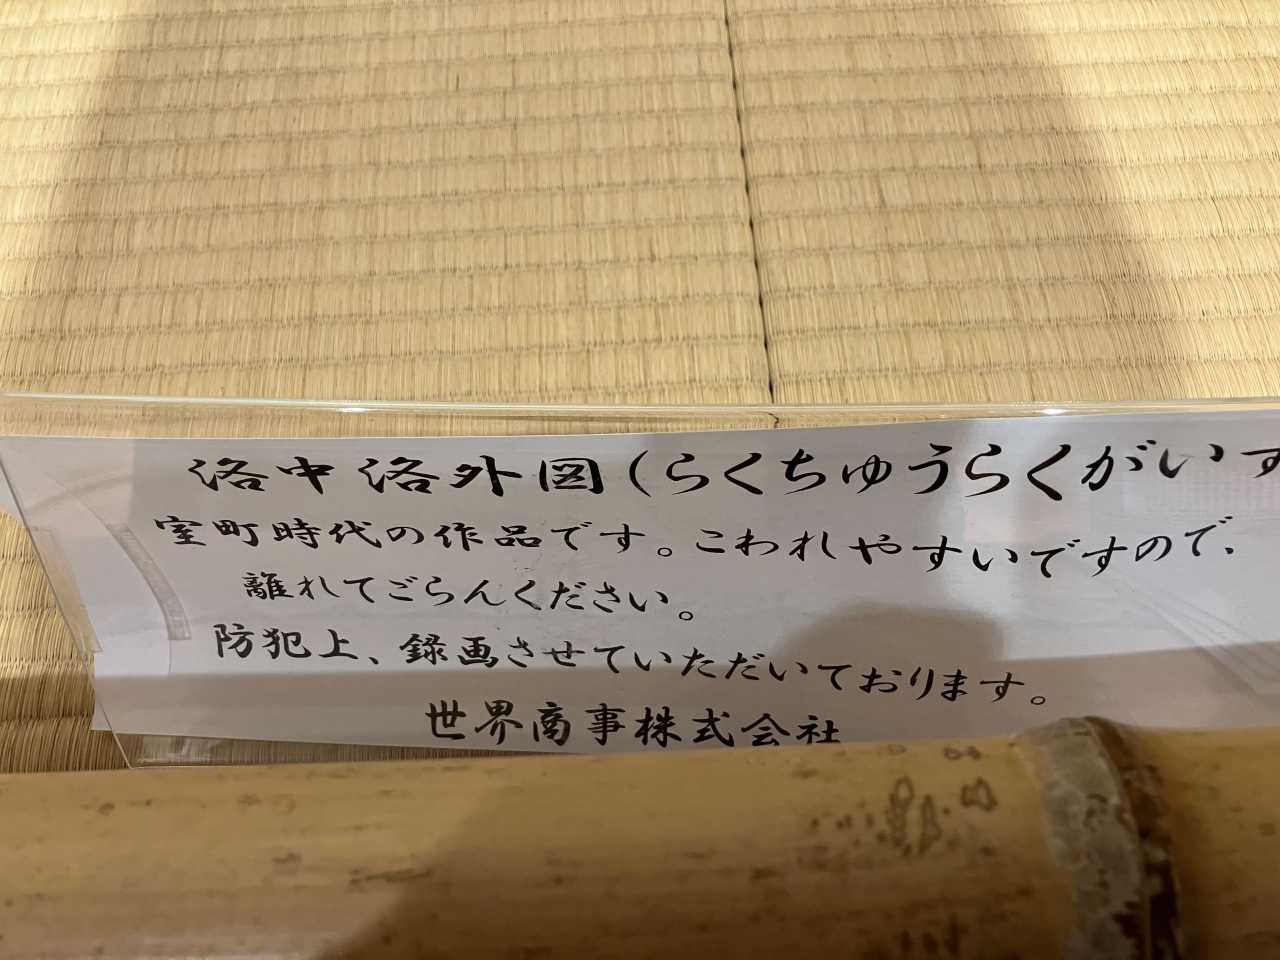 洛中洛外図(らくちゅうらくがいす
室町時代の作品です。こわれやすいですので、
離れてごらんください。
防犯上、録画させていただいております。
世界商事株式会社